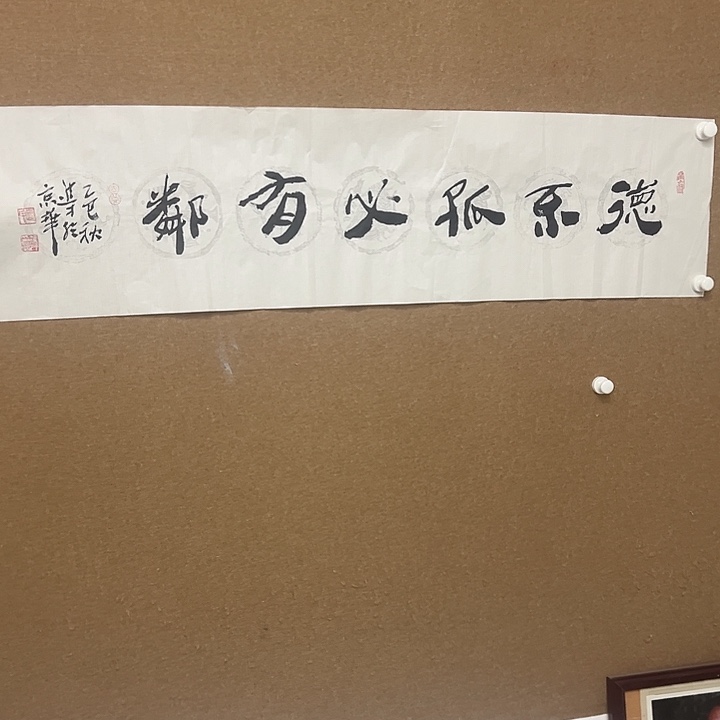 德不孤必有鄰
乙巳秋
京華